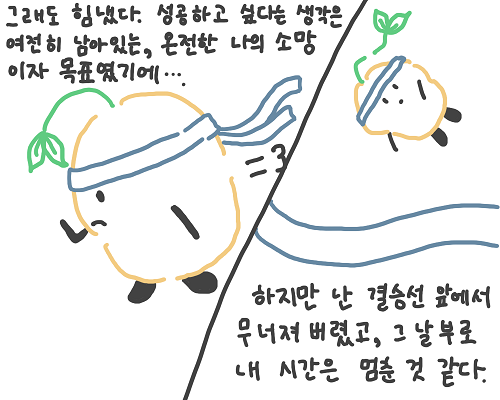 그래도 힘냈다. 성공하고 싶다는 생각은
여전히 남아있는, 온전한 나의 소망
이자 목표였기에...
=3
하지만 난 결승선 앞에서
무너져 버렸고, 그 날부로
내 시간은 멈춘 것 같다.